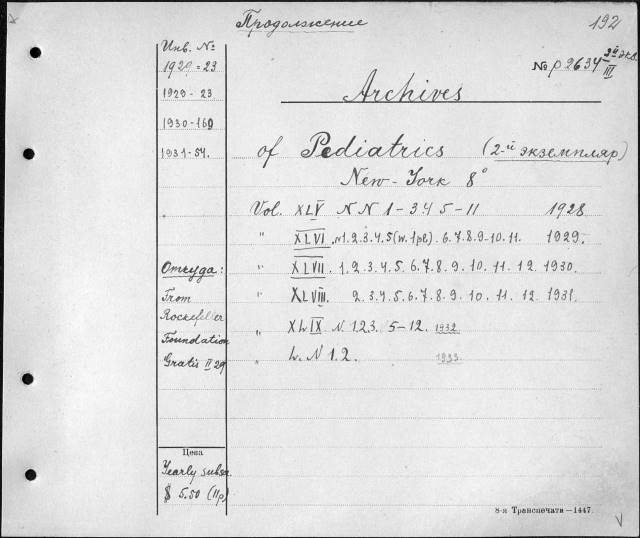 Продолжение
192
Инв. №
1929 = 23
1929 - 23
1930-160
1931-54.
№ p 2634 2й экз. III
Archives
of Pediatrics (2-й экземпляр)
New-York 8°
Vol. XLV N N 1-3 4 5-11 1928
" XLVI. N 1.2.3.4.5 (w. 1 pl.) .6.7.8.9-10.11. 1929.
Откуда: " XLVII. 1.2.3.4.5.6.7.8.9.10.11.12. 1930.
From " XLVIII. 2.3.4.5.6.7.8.9.10.11.12. 1931.
Rockefeller
" XLIX N. 1.2.3. 5-12. 1932
Foundation
Gratis II 29 " L. N 1.2. 1933
Цена
Yearly subscr.
$ 5.50 (11р)
8-я Транспечати-1447.
V